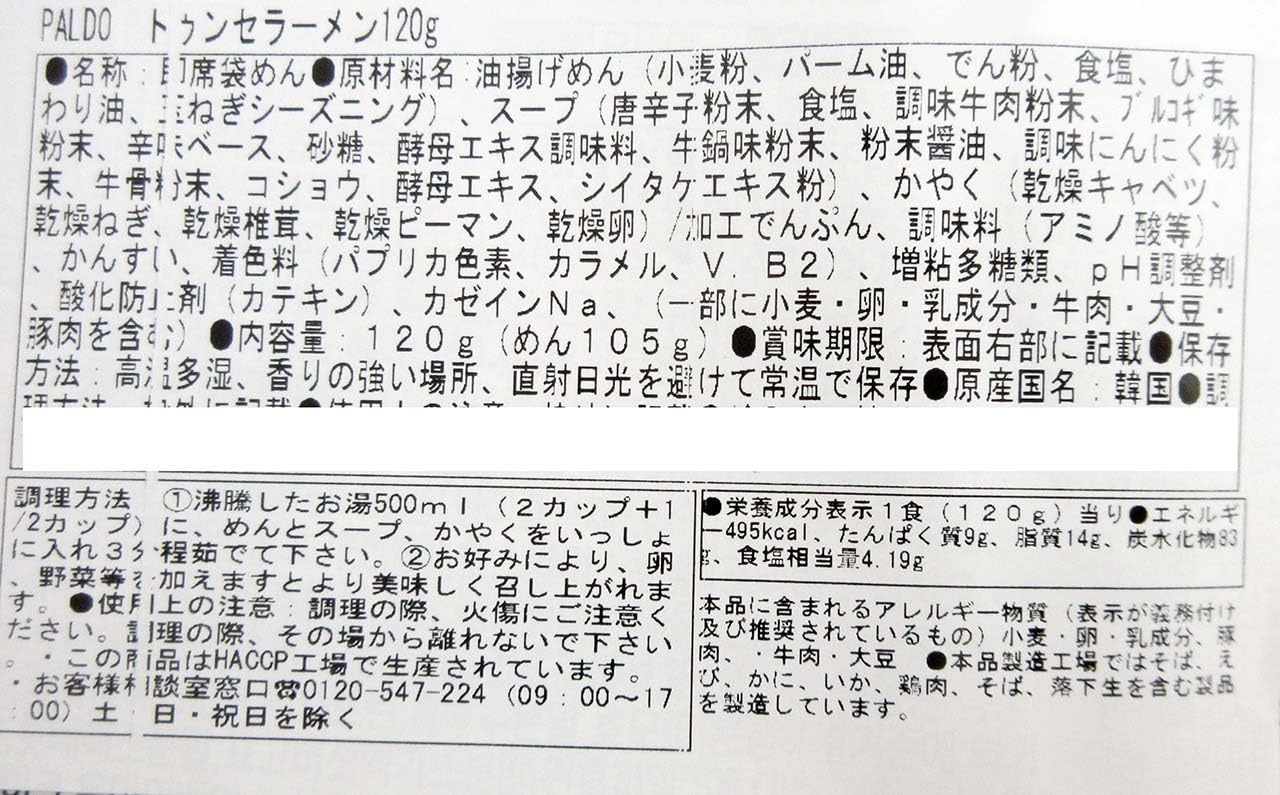 PALDO トゥンセラーメン120g
●名称：即席袋めん●原材料名：油揚げめん（小麦粉、パーム油、でん粉、食塩、ひま
わり油、玉ねぎシーズニング）、スープ（唐辛子粉末、食塩、調味牛肉粉末、ブルコギ味
粉末、辛味ベース、砂糖、酵母エキス調味料、牛鍋味粉末、粉末醤油、調味にんにく粉
末、牛骨粉末、コショウ、酵母エキス、シイタケエキス粉）、かやく（乾燥キャベツ、
乾燥ねぎ、乾燥椎茸、乾燥ピーマン、乾燥卵）/加工でんぷん、調味料（アミノ酸等）
、かんすい、着色料（パプリカ色素、カラメル、V．B2）、増粘多糖類、pH調整剤
、酸化防止剤（カテキン）、カゼインNa、（一部に小麦・卵・乳成分・牛肉・大豆・
豚肉を含む）●内容量：120g（めん105g）●賞味期限：表面右部に記載●保存
方法：高温多湿、香りの強い場所、直射日光を避けて常温で保存●原産国名：韓国●調
調理方法 ①沸騰したお湯500ml（2カップ+1
/2カップ）に、めんとスープ、かやくをいっしょ
に入れ3分程茹でて下さい。②お好みにより、卵
、野菜等を加えますとより美味しく召し上がれま
す。●使用上の注意：調理の際、火傷にご注意く
ださい。調理の際、その場から離れないで下さい
。・この商品はHACCP工場で生産されています。
・お客様相談室窓口☎0120-547-224（09：00～17
：00）土・日・祝日を除く
●栄養成分表示1食（120g）当り●エネルギ
ー495kcal、たんぱく質9g、脂質14g、炭水化物83
g、食塩相当量4.19g
本品に含まれるアレルギー物質（表示が義務付け
及び推奨されているもの）小麦・卵・乳成分、豚
肉、・牛肉・大豆 ●本品製造工場ではそば、え
び、かに、いか、鶏肉、そば、落下生を含む製品
を製造しています。